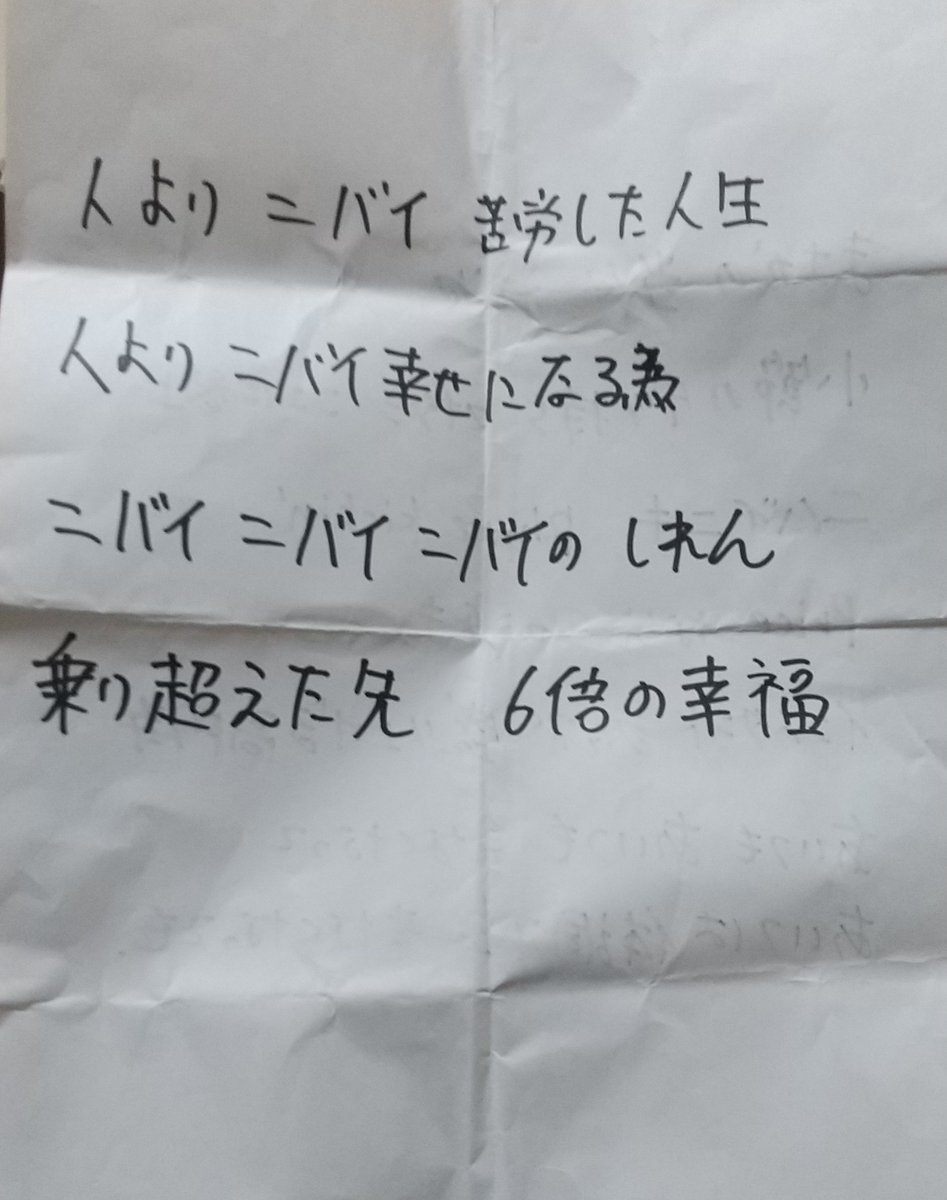 人より ニバイ 苦労した人生
人より ニバイ 幸せになる為
ニバイ ニバイ ニバイの しれん
乗り超えた先 6倍の幸福